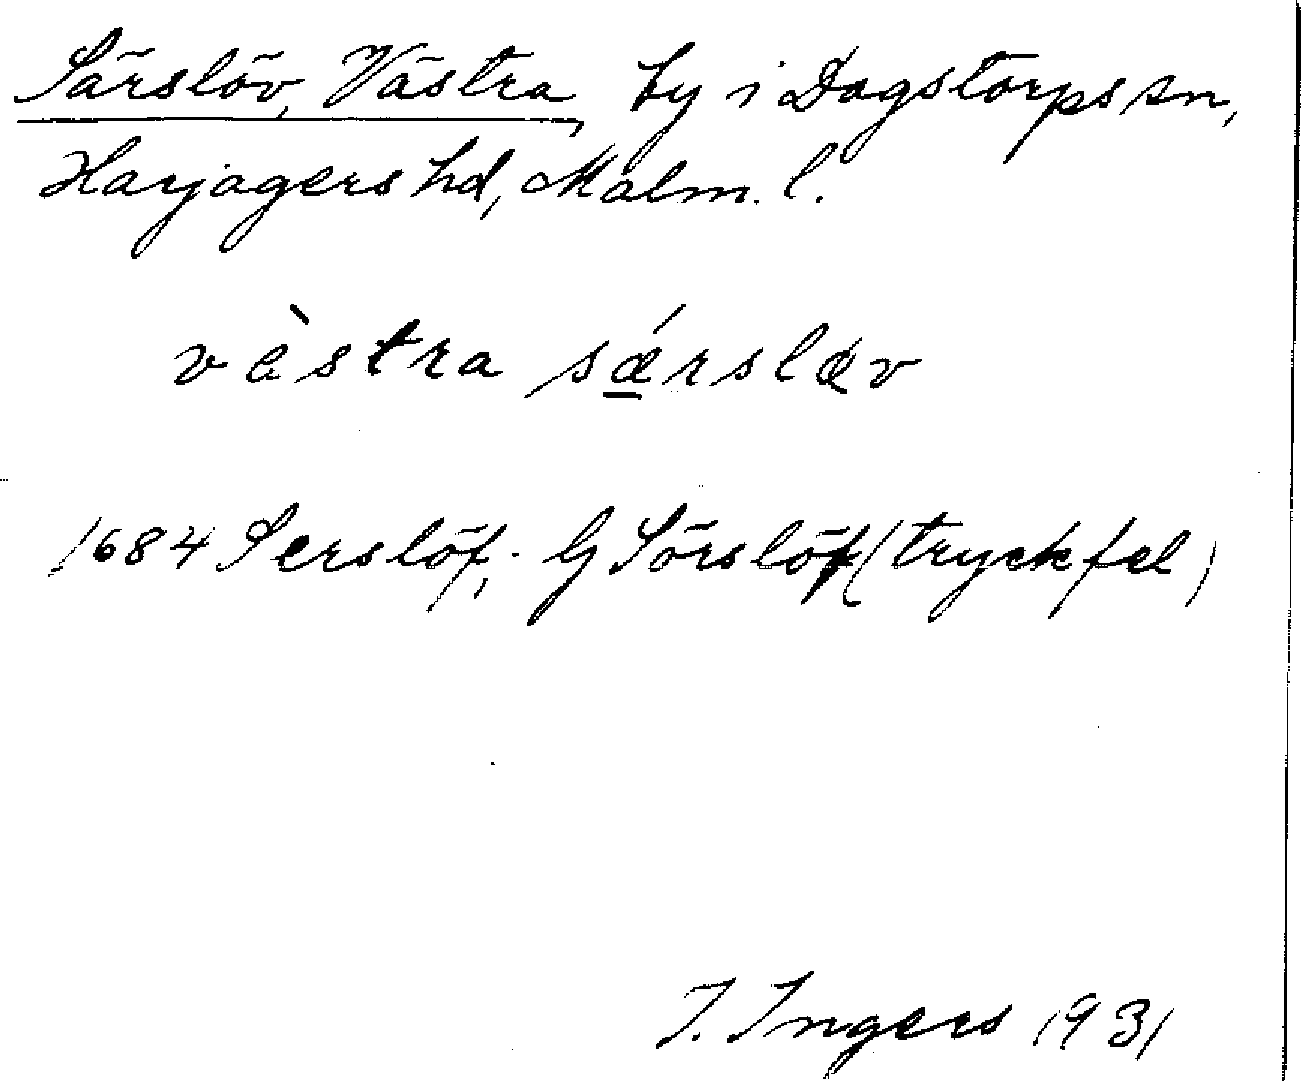 Särslöv, Västra, by i Dagstorps sn,
Harjagers hd, Malm. l.
vàstra sǽrslæv
1684 Serslöf; G Sörslöf (tryckfel)
I. Ingers 1931